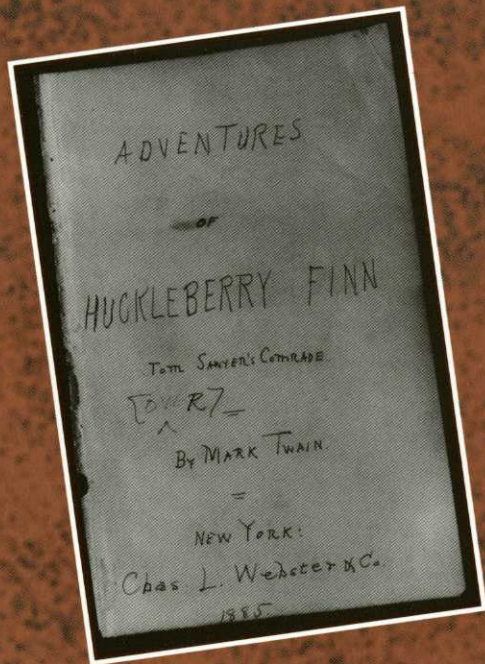 ADVENTURES
OF
HUCKLEBERRY FINN
TOM SAWYER'S COMRADE.
BY MARK TWAIN.
NEW YORK:
Chas L. Webster & Co.
1885.